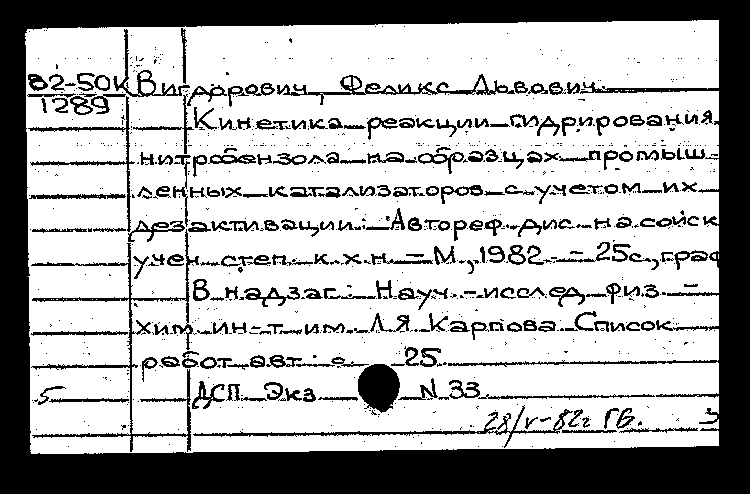 82-50К Вигдорович, Феликс Львович.
1289 Кинетика реакции гидрирования
нитробензола на образцах промыш-
ленных катализаторов с учетом их
дезактивации: Автореф. дис. на соиск.
учен. степ. к. х. н. - М., 1982. - 25с., граф
В надзаг.: Науч.-исслед. физ.-
хим. ин-т им. Л. Я. Карпова. Список
работ авт.: с. 25
5 ДСП. Экз. N 33.
28/V-82г ГБ.